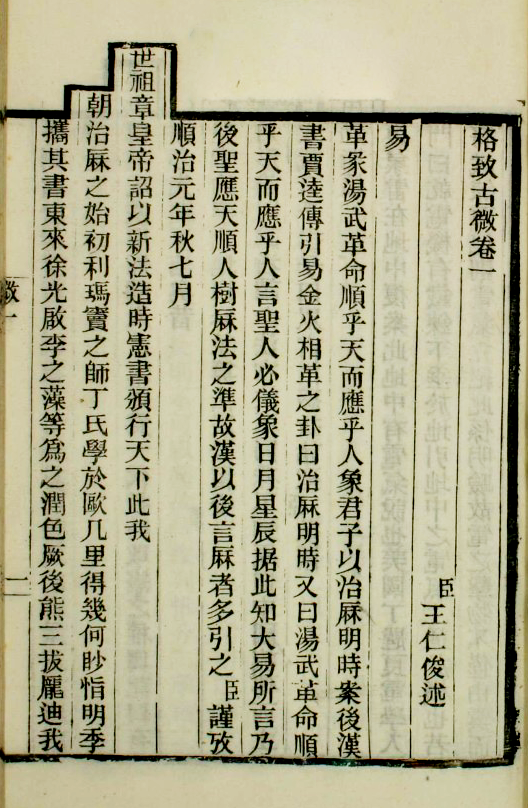 格致古微卷一
臣王仁俊述
易
革彖湯武革命順乎天而應乎人象君子以治厤明時案後漢
書賈逵傳引易金火相革之卦曰治厤明時又曰湯武革命順
乎天而應乎人言聖人必儀象日月星辰据此知大易所言乃
後聖應天順人樹厤法之準故漢以後言厤者多引之臣謹攷
順治元年秋七月
世祖章皇帝詔以新法造時憲書頒行天下此我
朝治厤之始初利瑪竇之師丁氏學於歐几里得幾何眇恉明季
攜其書東來徐光啟李之藻等爲之潤色厥後熊三拔龐迪我
微一
一